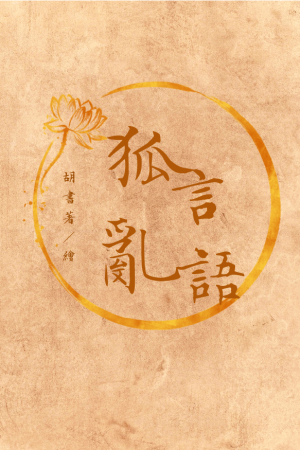 狐言亂語
胡書著／繪